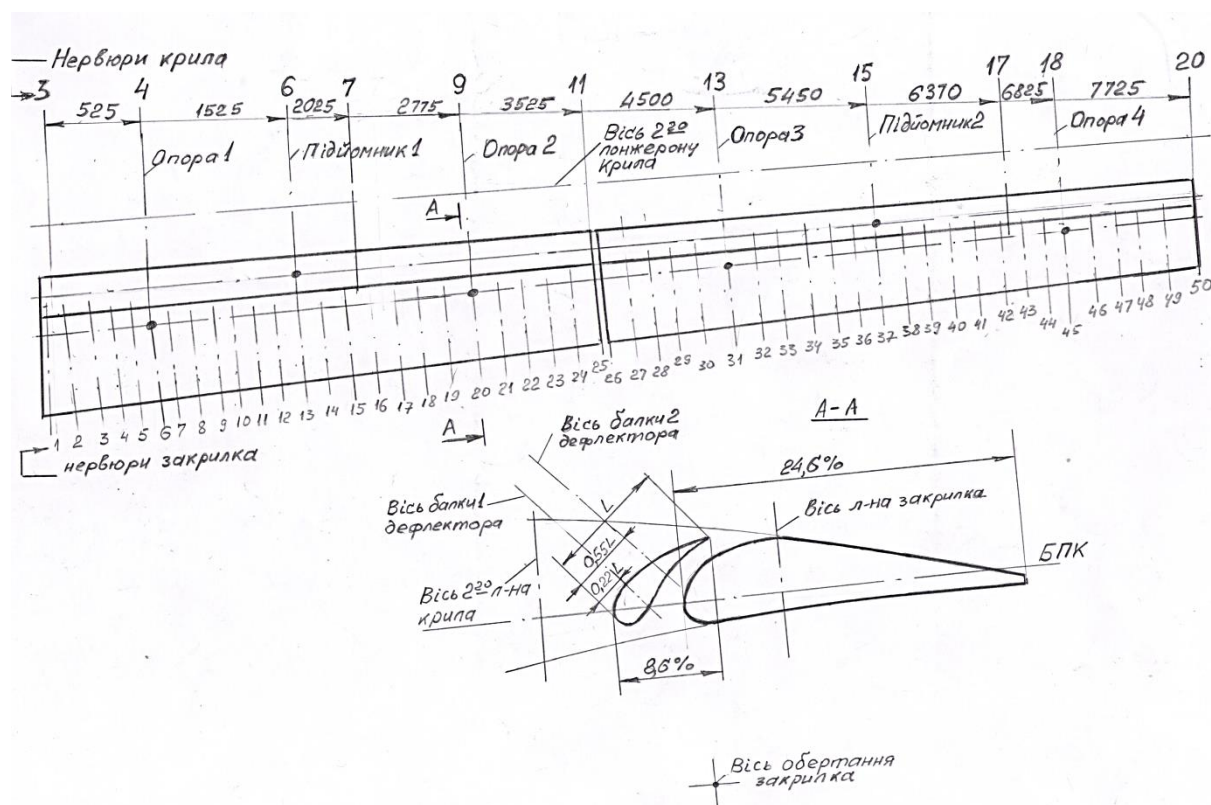 Нервюри крила
3 4 6 7 9 11 13 15 17 18 20
525 1525 2025 2775 3525 4500 5450 6370 6825 7725
Опора 1
Підйомник 1
Опора 2
Вісь 2го
лонжерону
крила
Опора 3
Підйомник 2
Опора 4
А
1 2 3 4 5 6 7 8 9 10 11 12 13 14 15 16 17 18 19 20 21 22 23 24 25 26 27 28 29 30 31 32 33 34 35 36 37 38 39 40 41 42 43 44 45 46 47 48 49 50
нервюри закрилка
А
А-А
Вісь балки 2
дефлектора
24,6%
Вісь балки 1
дефлектора
L
0,55L
0,22L
Вісь л-на закрилка
БПК
Вісь 2го л-на
крила
8,6%
Вісь обертання
закрилка